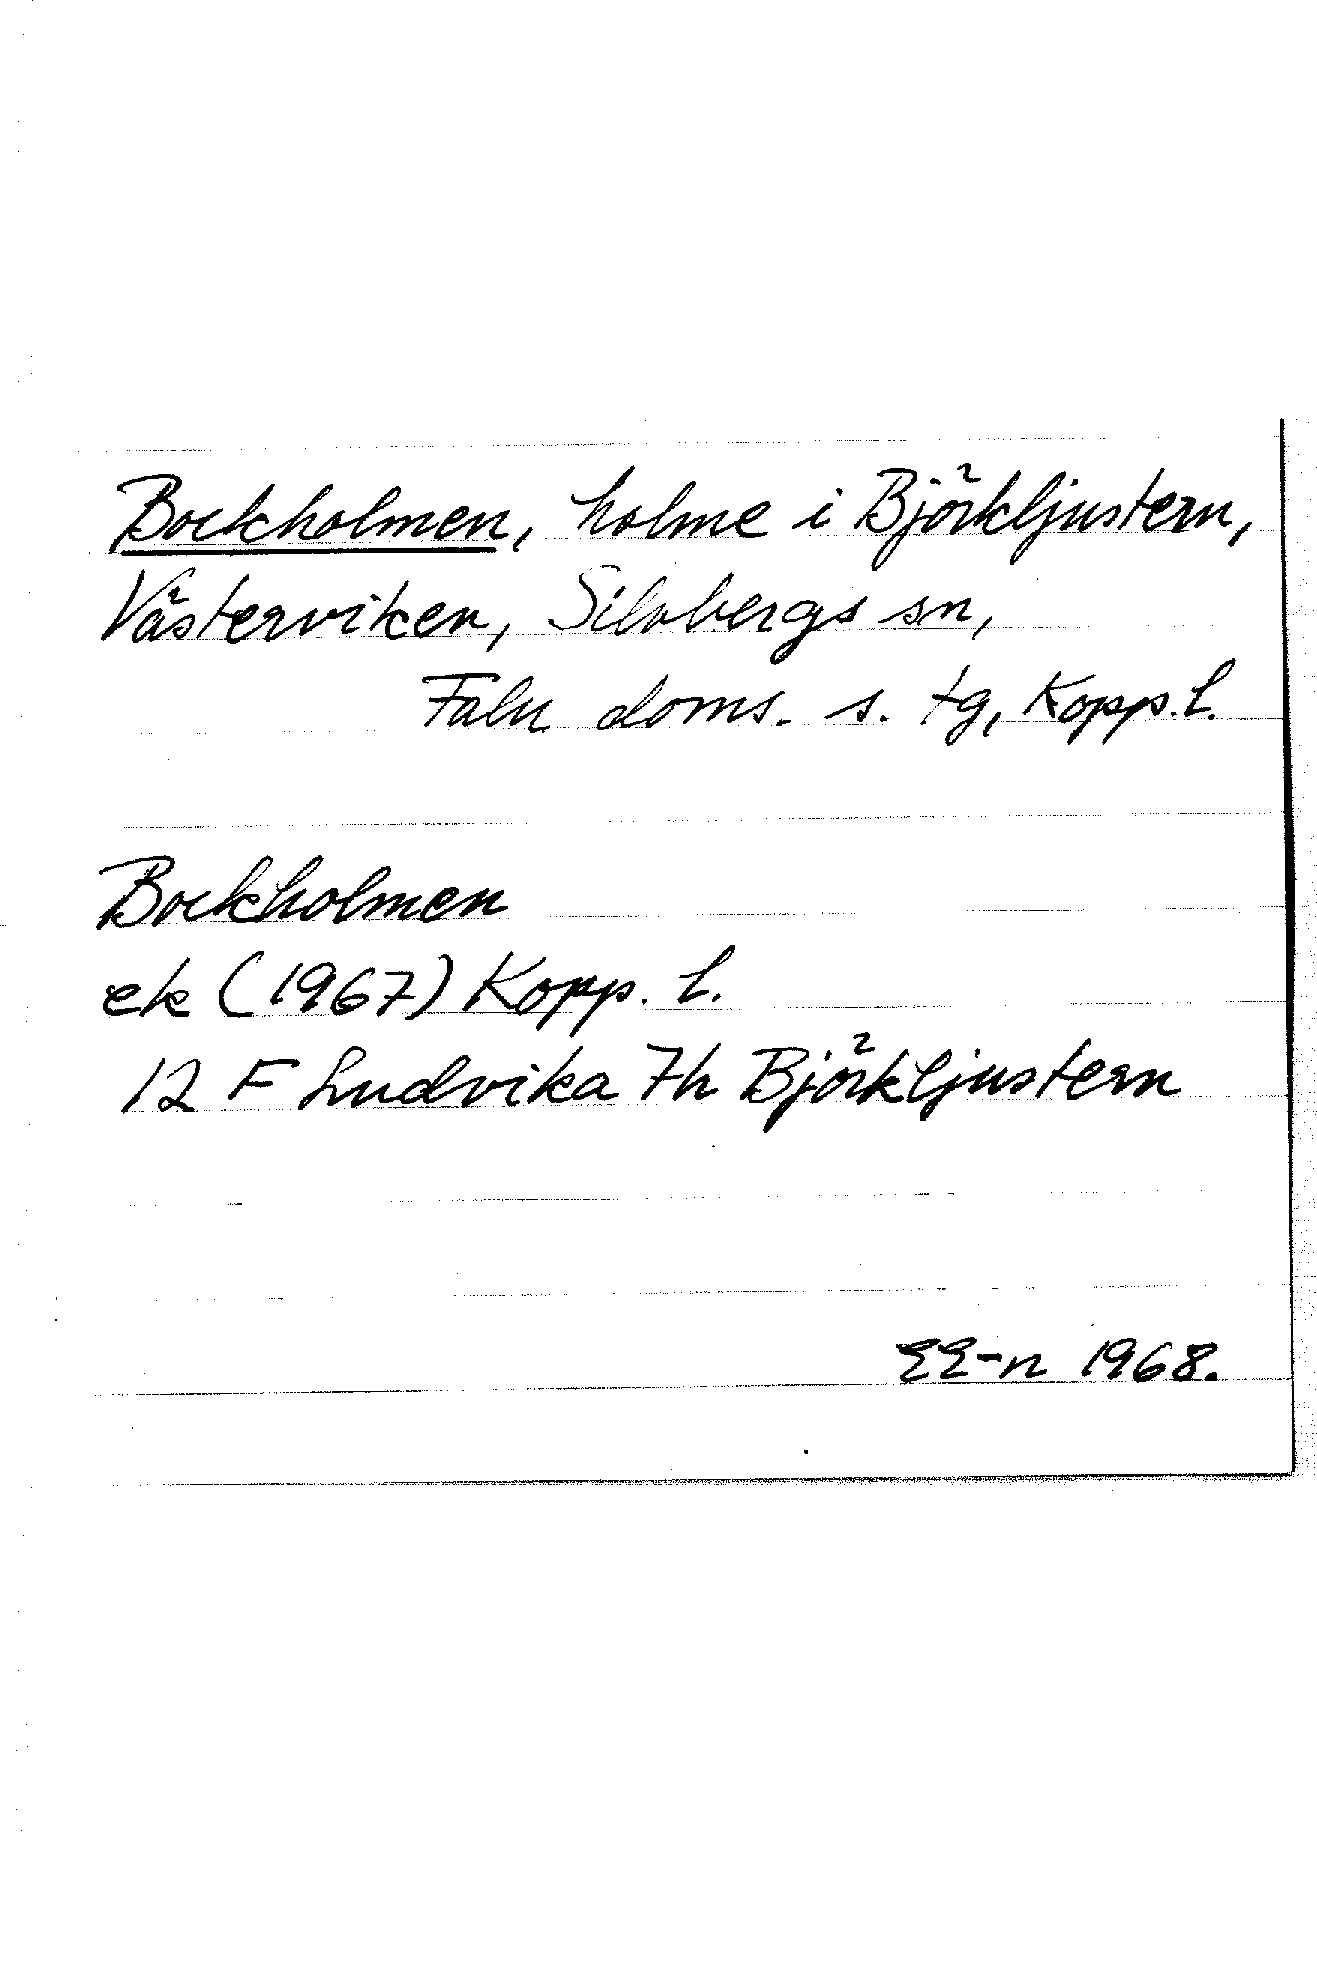 Bockholmen, holme i Björkljustern,
Västerviken, Silvbergs sn,
Falu doms. s. tg, Kopp. l.
Bockholmen
ek (1967) Kopp. l.
12 F Ludvika 7h Björkljustern
EE-n 1968.